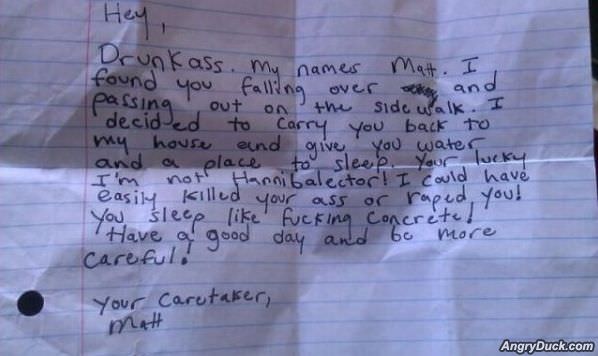 Hey,
Drunkass. My names Matt. I
found you falling over and
passing out on the sidewalk. I
decided to carry you back to
my house and give you water
and a place to sleep. Your lucky
I'm not Hannibalector! I could have
easily killed your ass or raped you!
You sleep like fucking concrete!
Have a good day and be more
careful!
Your Caretaker,
Matt
AngryDuck.com